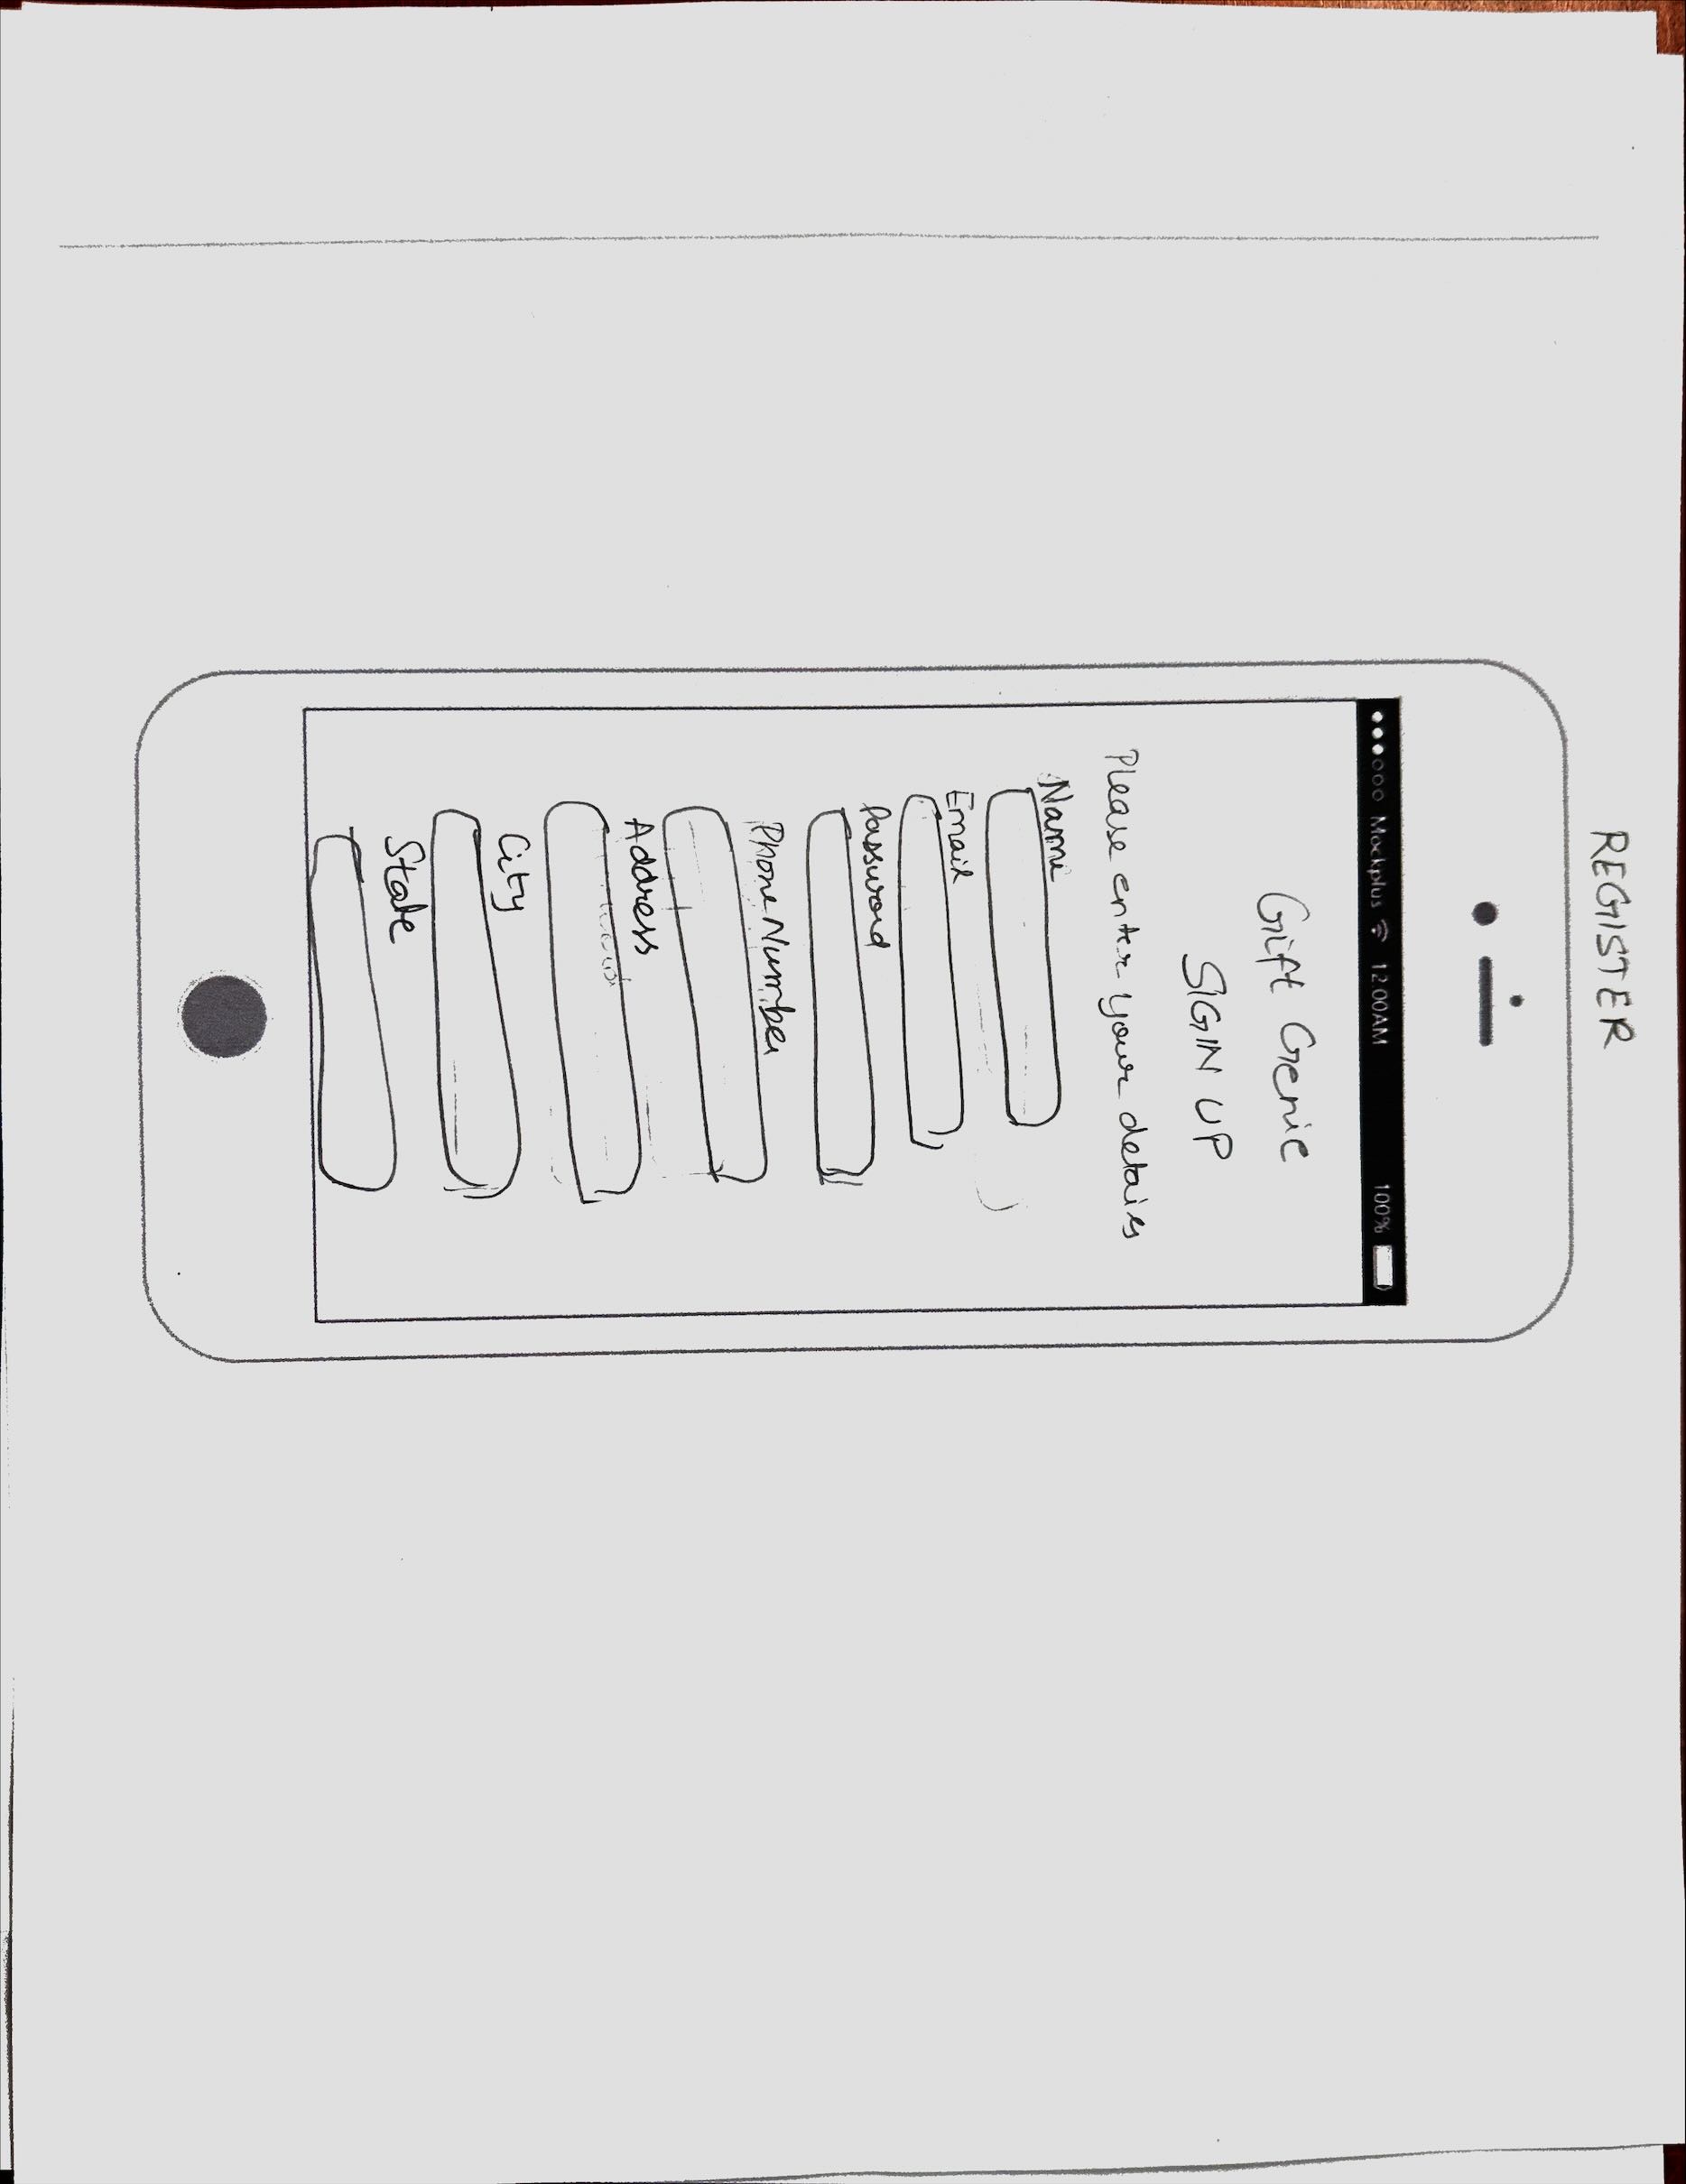 REGISTER
Mockplus 12:00AM 100%
Gift Genie
SIGIN UP
Please enter your details
Name
Email
Password
Phone Number
Address
City
State